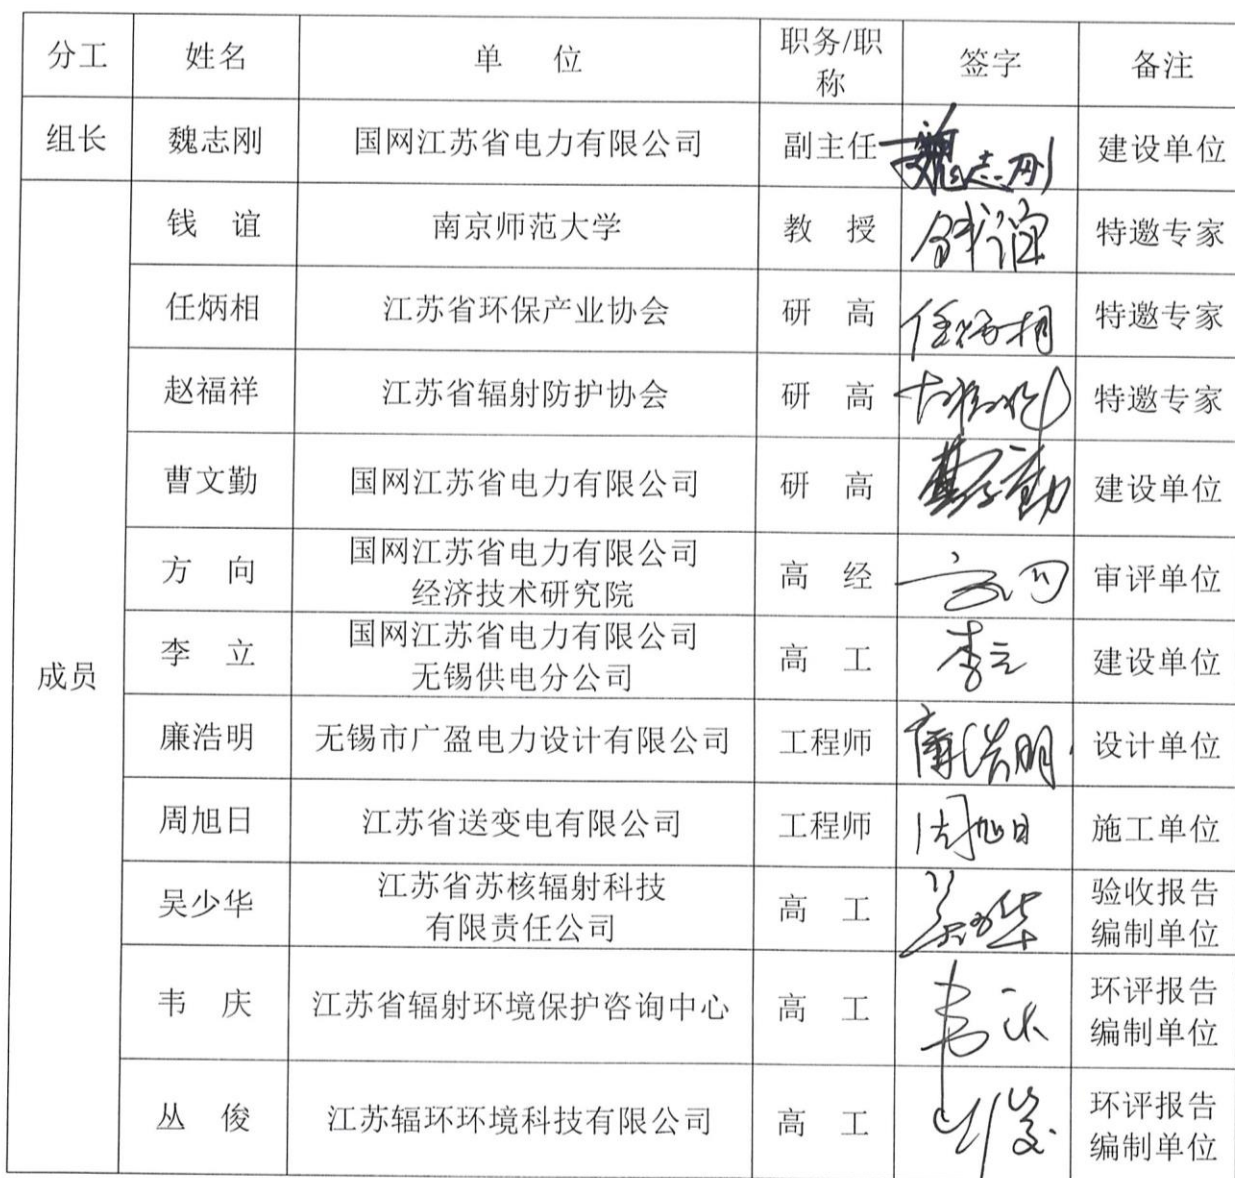 分工 姓名 单 位 职务/职称 签字 备注
组长 魏志刚 国网江苏省电力有限公司 副主任 魏志刚 建设单位
成员
钱 谊 南京师范大学 教 授 钱谊 特邀专家
任炳相 江苏省环保产业协会 研 高 任炳相 特邀专家
赵福祥 江苏省辐射防护协会 研 高 特邀专家
曹文勤 国网江苏省电力有限公司 研 高 曹文勤 建设单位
方 向 国网江苏省电力有限公司
经济技术研究院 高 经 方向 审评单位
李 立 国网江苏省电力有限公司
无锡供电分公司 高 工 李立 建设单位
廉浩明 无锡市广盈电力设计有限公司 工程师 廉浩明 设计单位
周旭日 江苏省送变电有限公司 工程师 周旭日 施工单位
吴少华 江苏省苏核辐射科技
有限责任公司 高 工 吴少华 验收报告
编制单位
韦 庆 江苏省辐射环境保护咨询中心 高 工 韦庆 环评报告
编制单位
丛 俊 江苏辐环环境科技有限公司 高 工 丛俊 环评报告
编制单位